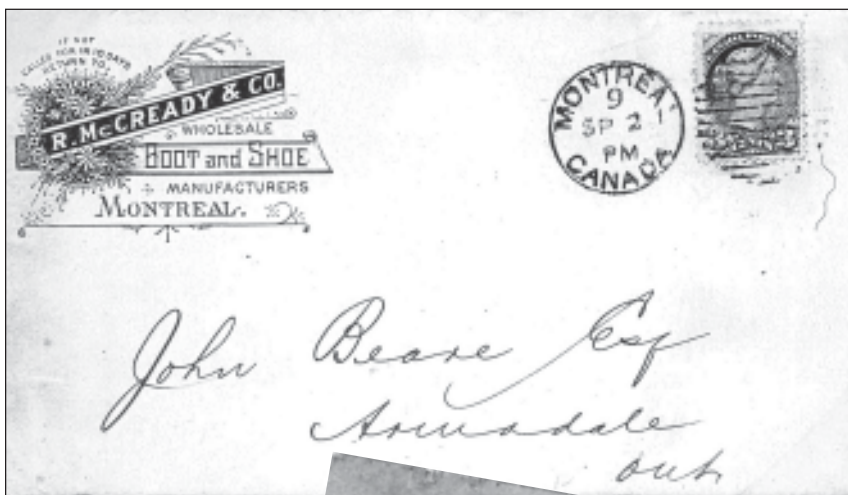 IF NOT
CALLED FOR IN 10 DAYS
RETURN TO
R. McCREADY & CO.
WHOLESALE
BOOT and SHOE
MANUFACTURERS
MONTREAL.
MONTREAL
9
SP 2
PM
CANADA
John Beare Esq
Armadale
Ont